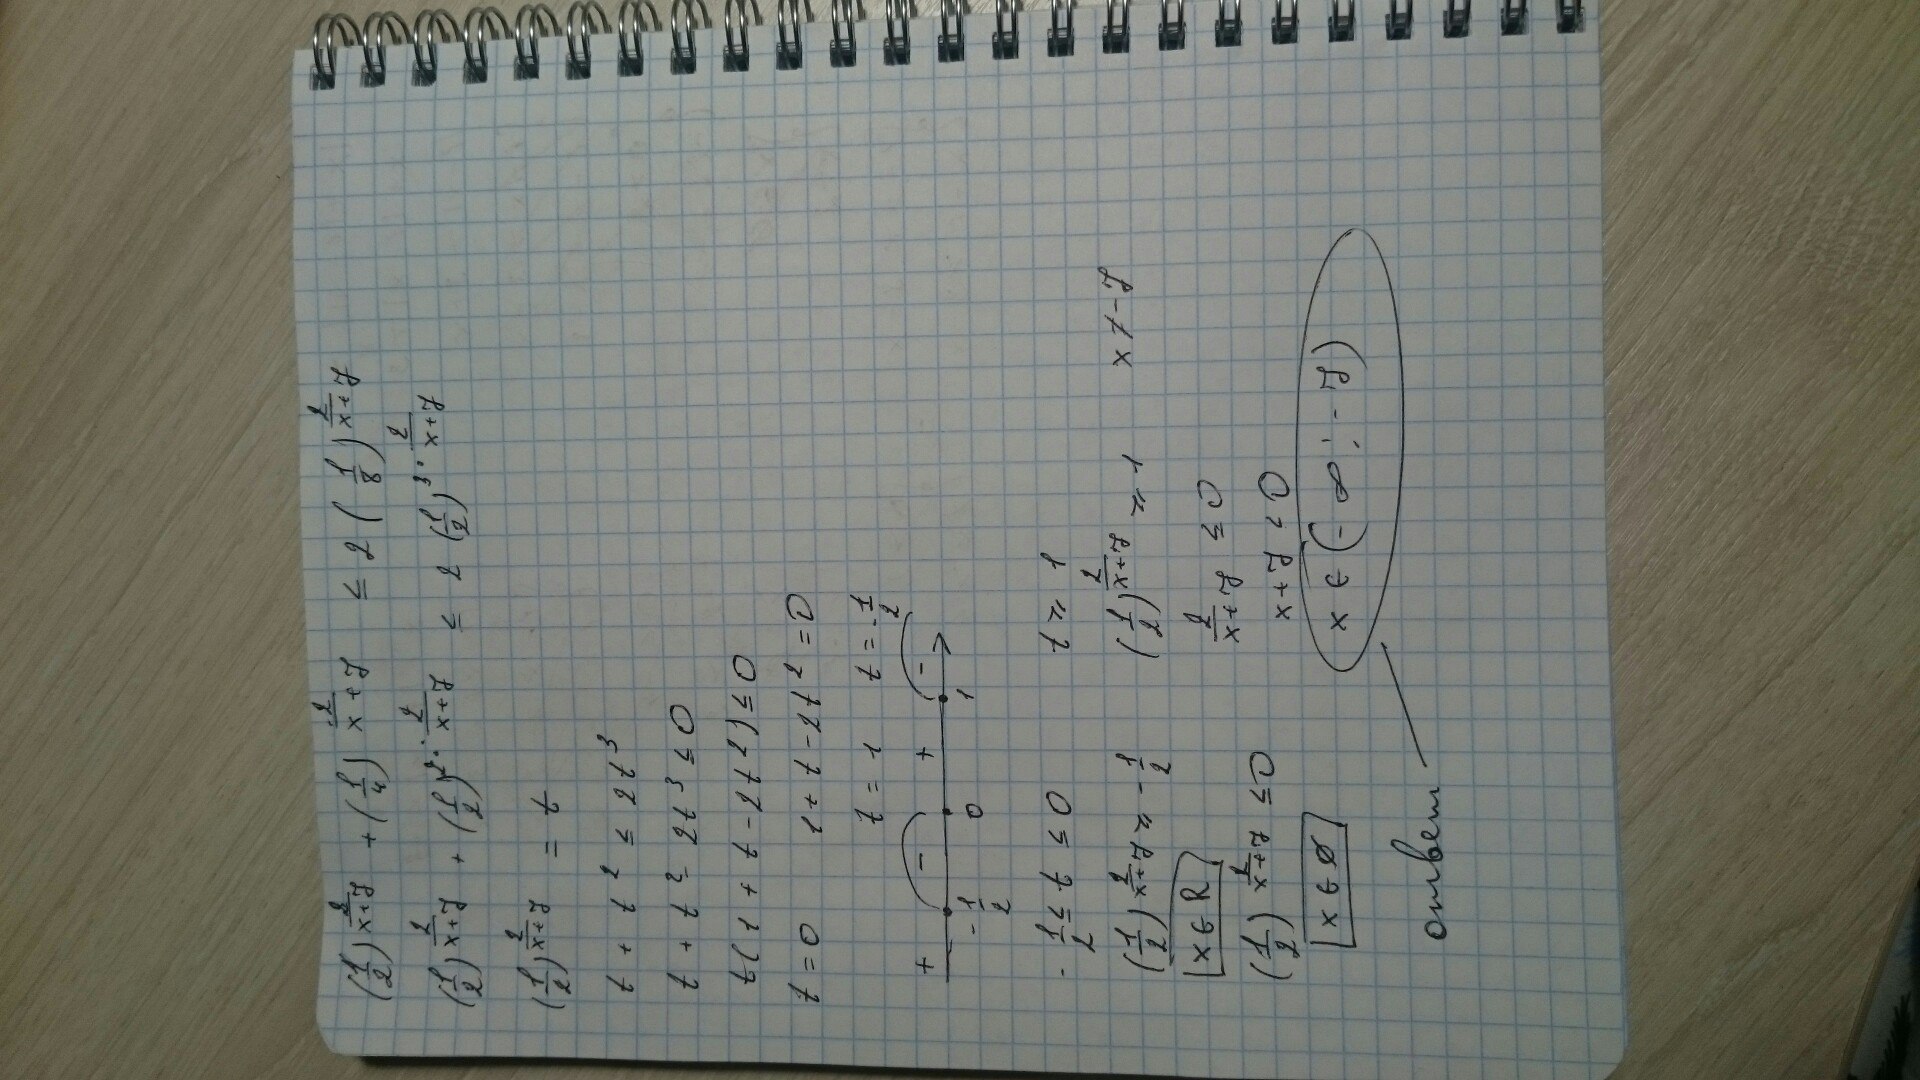 (1/2)^(2/(x+7)) + (1/4)^(2/(x+7)) ≤ 2(1/8)^(2/(x+7))
(1/2)^(2/(x+7)) + (1/2)^(2·2/(x+7)) ≤ 2(1/2)^(3·2/(x+7))
(1/2)^(2/(x+7)) = t
t + t² ≤ 2t³
t + t² - 2t³ ≤ 0
t(1 + t - 2t²) ≤ 0
t = 0 1 + t - 2t² = 0
t = 1 t = -1/2
+ - + -
-1/2 0 1
-1/2 ≤ t ≤ 0 t ≥ 1
(1/2)^(2/(x+7)) ≥ -1/2 (1/2)^(2/(x+7)) ≥ 1 x ≠ -7
x ∈ R 2/(x+7) ≤ 0
(1/2)^(2/(x+7)) ≤ 0 x + 7 < 0
x ∈ ∅ x ∈ (-∞; -7)
ответ